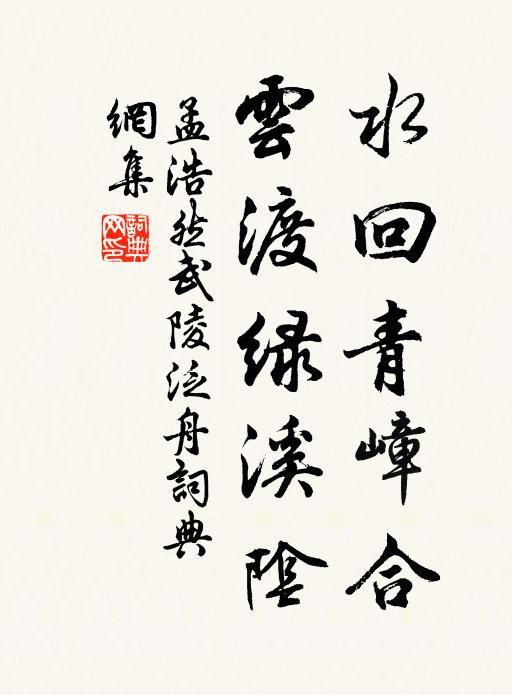 水回青嶂合
雲渡绿溪陰
孟浩然武陵泛舟詞典
網集
詞典
网印